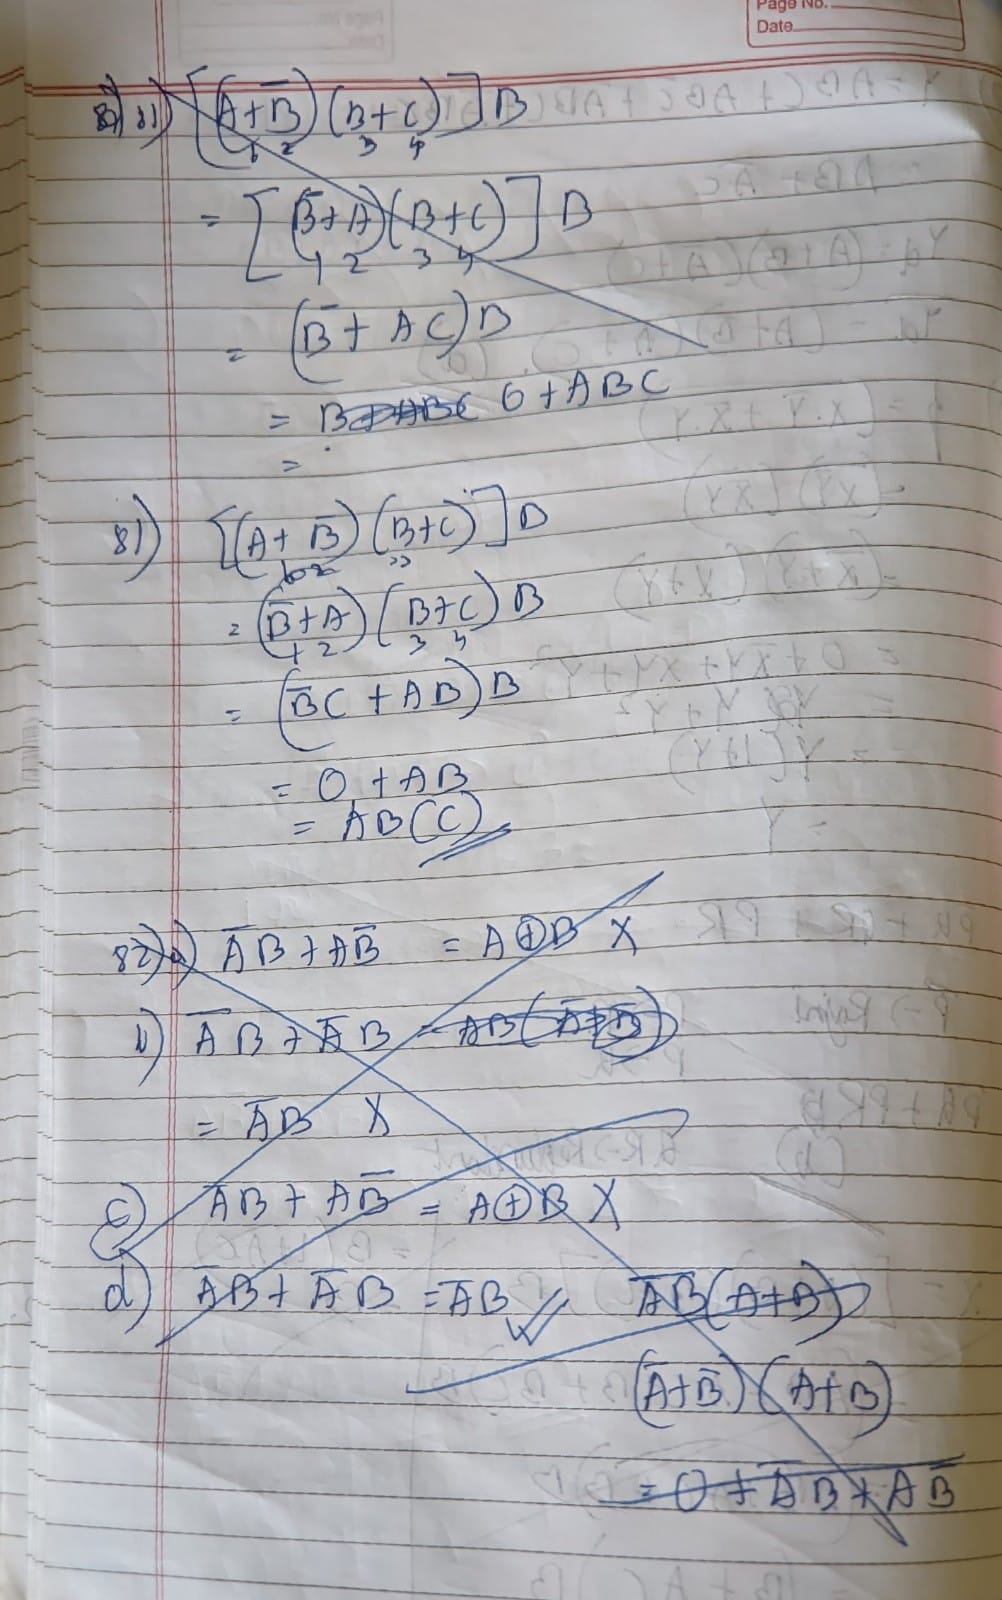 Page No.
Date
81) [(A+B̅)(B+C)]B
1 2 3 4
= [(B̅+A)(B+C)]B
1 2 3 4
= (B̅ + AC)B
= B+ABC 0 + ABC
=
81) [(A+B̅)(B+C)]B
= (B̅+A)(B+C)B
1 2 3 4
= (B̅C + AB)B
= 0 + AB
= AB (C)
82) a) A̅B + AB̅ = A⊕B X
b) A̅B + A̅B = AB(A̅+B̅)
= A̅B X
c) A̅B + AB̅ = A⊕B X
d) A̅B + A̅B = A̅B ✓ A̅B̅(A+B)
(A̅+B̅)(A+B)
= 0 + A̅B + AB̅